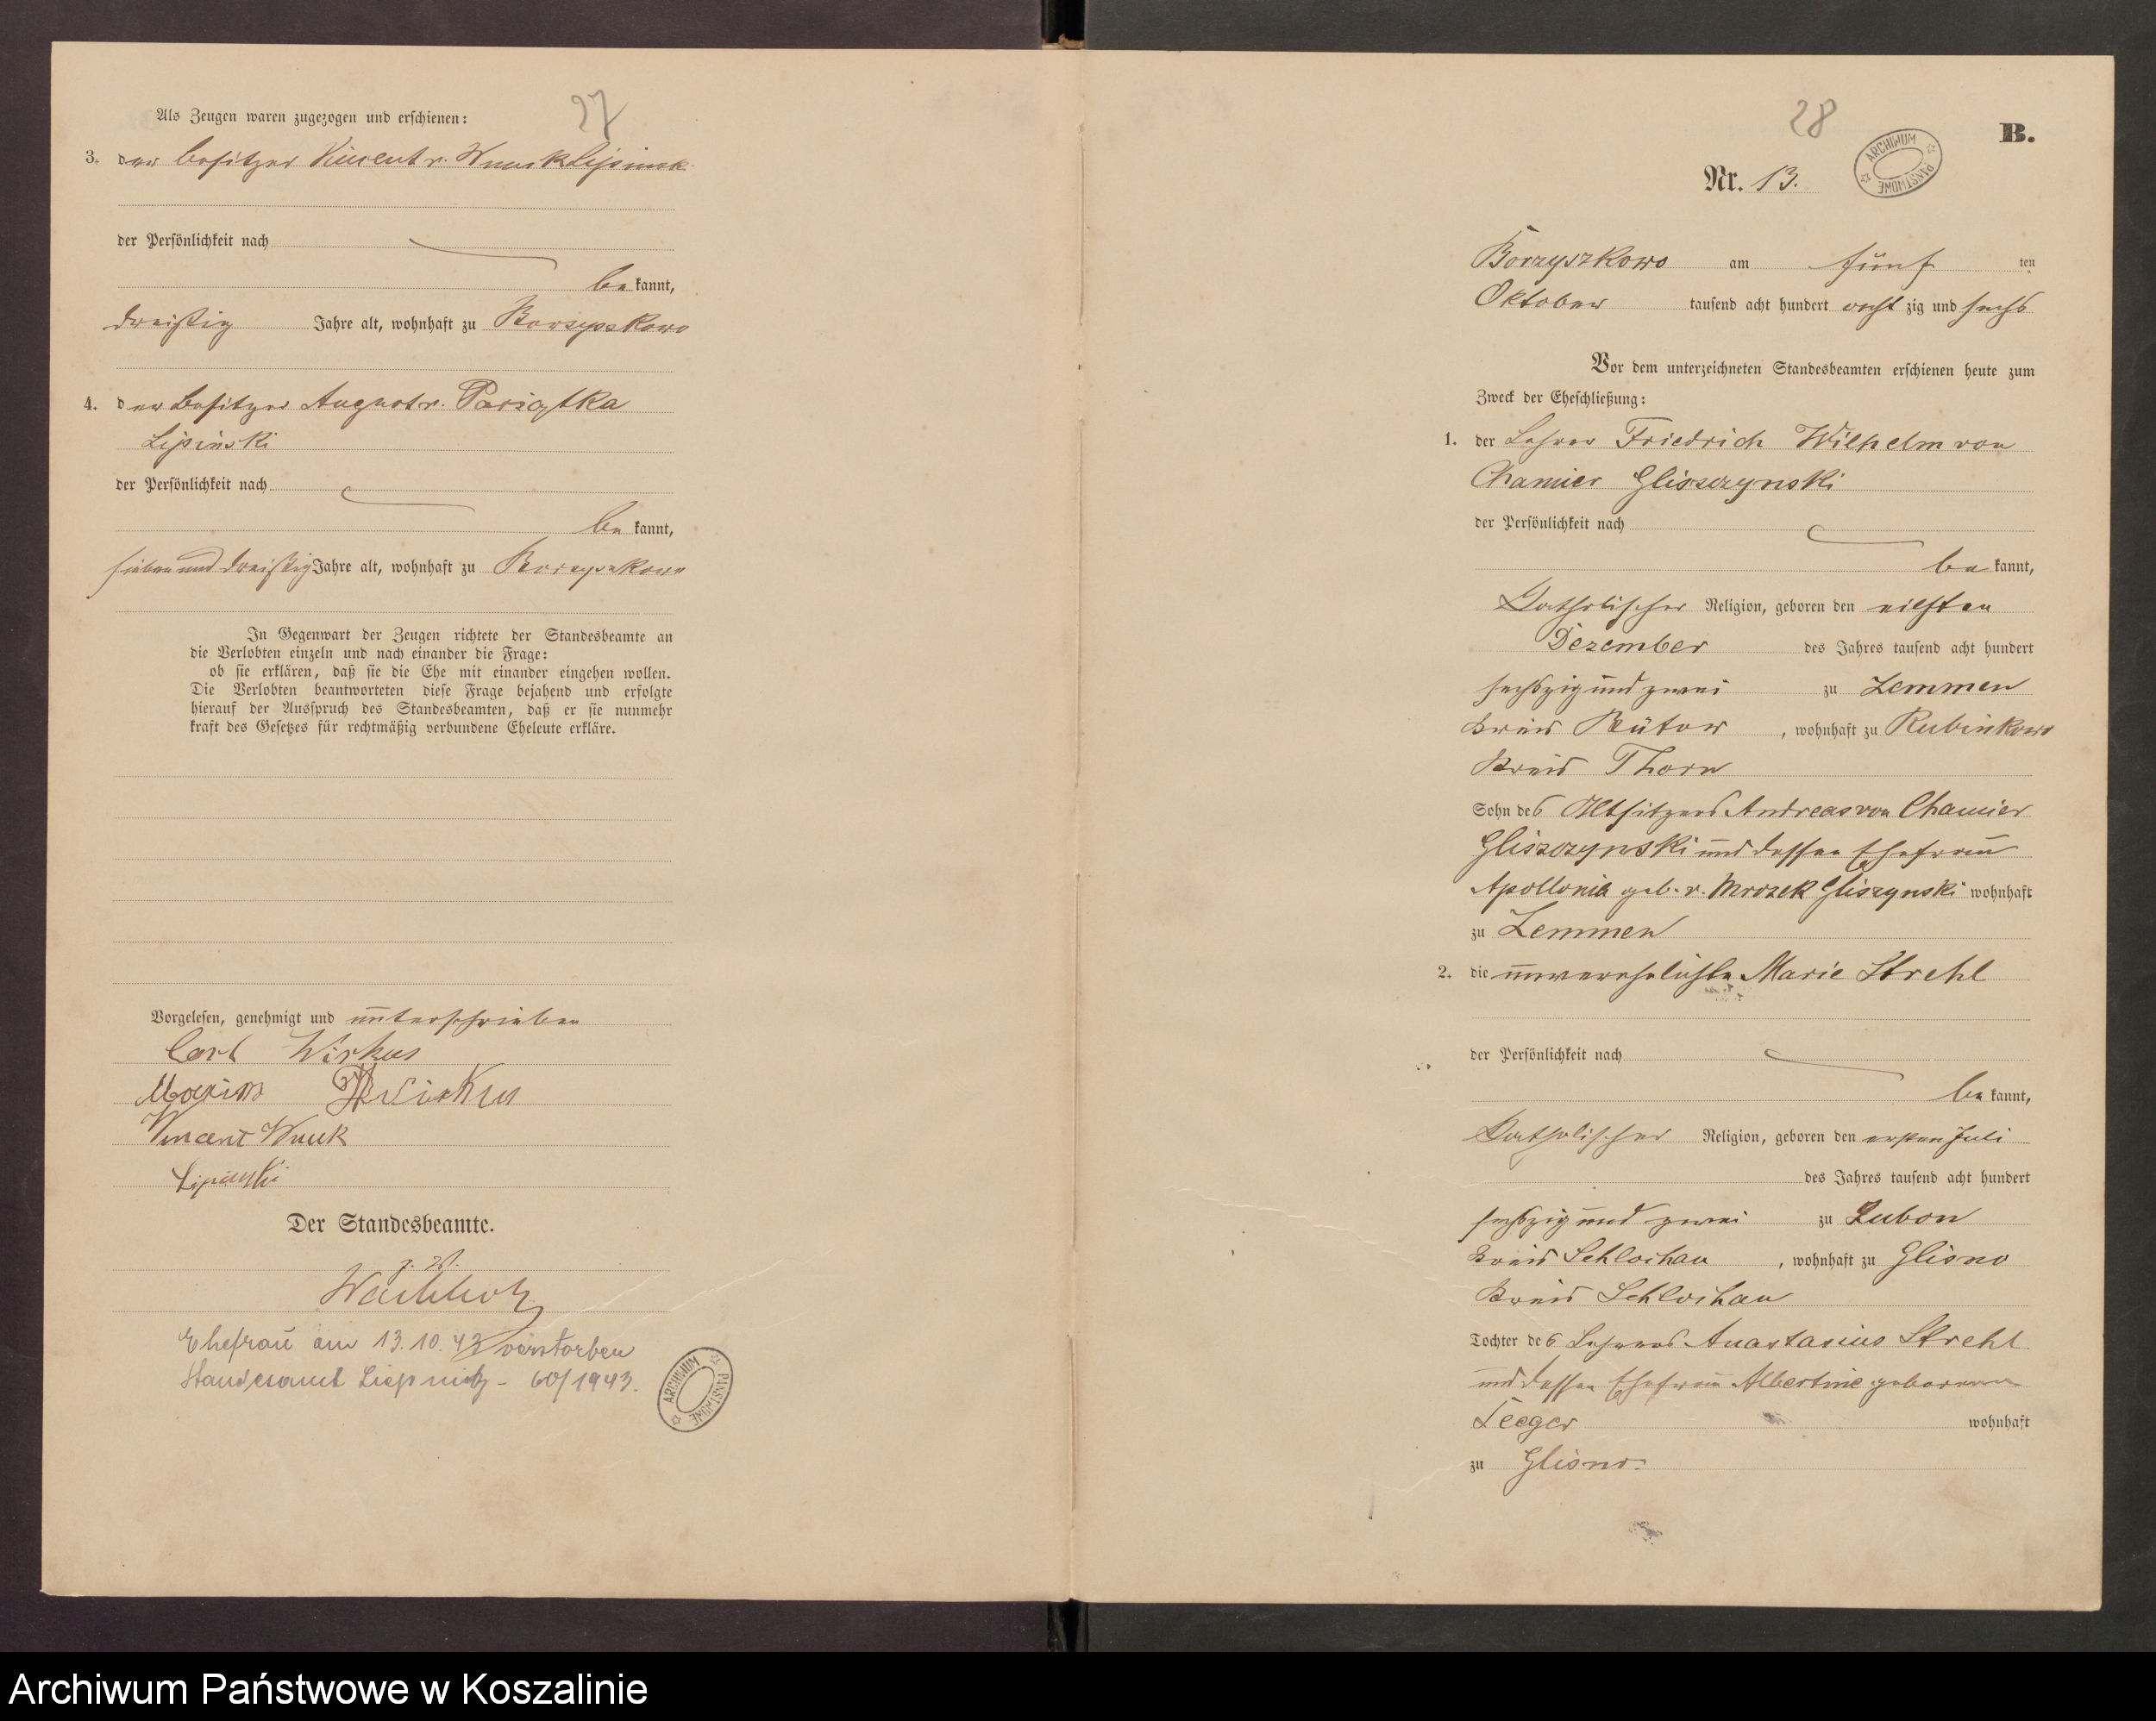 27
Als Zeugen waren zugezogen und erschienen:
3. der Besitzer Vincent v. Wnuk Lipinski
der Persönlichkeit nach
be kannt,
dreißig Jahre alt, wohnhaft zu Borzyszkowo
4. der Besitzer August v. Pariatka
Lipinski
der Persönlichkeit nach
be kannt,
sieben und dreißig Jahre alt, wohnhaft zu Borzyszkowo
In Gegenwart der Zeugen richtete der Standesbeamte an
die Verlobten einzeln und nach einander die Frage:
ob sie erklären, daß sie die Ehe mit einander eingehen wollen.
Die Verlobten beantworteten diese Frage bejahend und erfolgte
hierauf der Ausspruch des Standesbeamten, daß er sie nunmehr
kraft des Gesetzes für rechtmäßig verbundene Eheleute erkläre.
Vorgelesen, genehmigt und unterschrieben
Carl Wirkus
Vincent Wnuk
Lipinski
Der Standesbeamte.
Ehefrau am 13.10.43 verstorben
Standesamt Liepnitz - 60/1943.
ARCHIWUM PAŃSTWOWE
28
B.
Nr. 13.
ARCHIWUM PAŃSTWOWE
Borzyszkowo am fünf ten
Oktober tausend acht hundert acht zig und sechs
Vor dem unterzeichneten Standesbeamten erschienen heute zum
Zweck der Eheschließung:
1. der Lehrer Friedrich Wilhelm von
Chamier Gliszczynski
der Persönlichkeit nach
be kannt,
Katholischer Religion, geboren den eilften
Dezember des Jahres tausend acht hundert
sechszig und zwei zu Zemmen
Kreis Bütow , wohnhaft zu Rubinkowo
Kreis Thorn
Sohn des Altsitzers Andreas von Chamier
Gliszczynski und dessen Ehefrau
Apollonia geb. v. Mrozek Gliszynski wohnhaft
zu Zemmen
2. die unverehelichte Marie Strehl
der Persönlichkeit nach
be kannt,
Katholischer Religion, geboren den ersten Juli
des Jahres tausend acht hundert
sechszig und zwei zu Lubon
Kreis Schlochau , wohnhaft zu Glisno
Kreis Schlochau
Tochter des Lehrers Anastasius Strehl
und dessen Ehefrau Albertine geborenen
Teeger wohnhaft
zu Glisno.
Archiwum Państwowe w Koszalinie